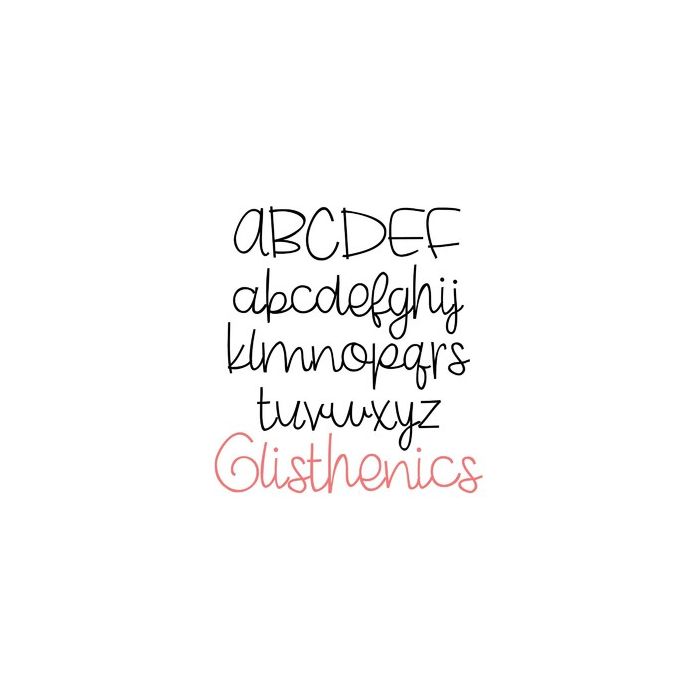 ABCDEF
abcdefghij
klmnopqrs
tuvwxyz
Glisthenics